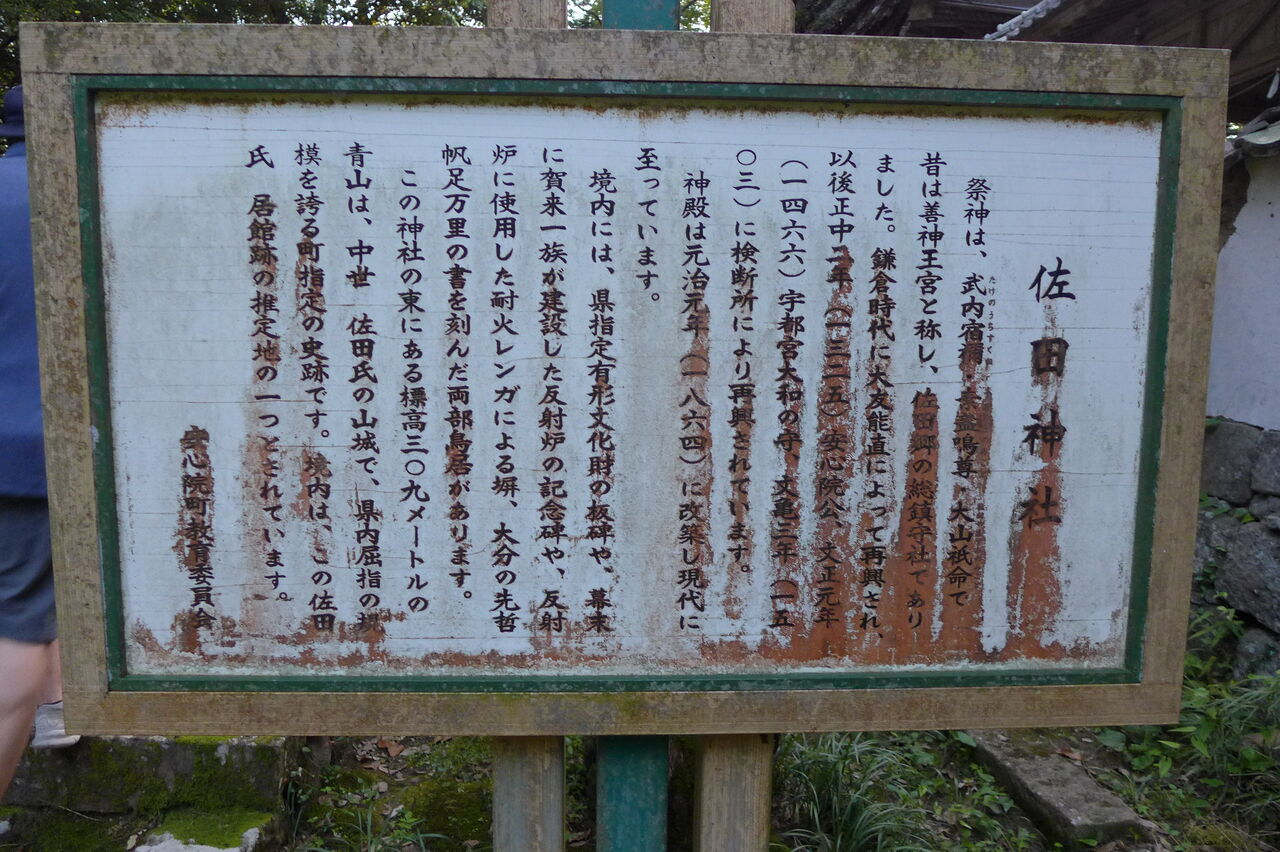 佐田神社
祭神は、武内宿禰・素盞嗚尊・大山祇命で
たけのうちすくね
昔は善神王宮と称し、佐田郷の総鎮守社であり
ました。鎌倉時代に大友能直によって再興され、
以後正中二年（一三二五）安心院公、文正元年
（一四六六）宇都宮大和の守、文亀三年（一五
〇三）に検断所により再興されています。
神殿は元治元年（一八六四）に改築し現代に
至っています。
境内には、県指定有形文化財の板碑や、幕末
に賀来一族が建設した反射炉の記念碑や、反射
炉に使用した耐火レンガによる塀、大分の先哲
帆足万里の書を刻んだ両部鳥居があります。
この神社の東にある標高三〇九メートルの
青山は、中世　佐田氏の山城で、県内屈指の規
模を誇る町指定の史跡です。境内は、この佐田
氏　居館跡の推定地の一つとされています。
安心院町教育委員会